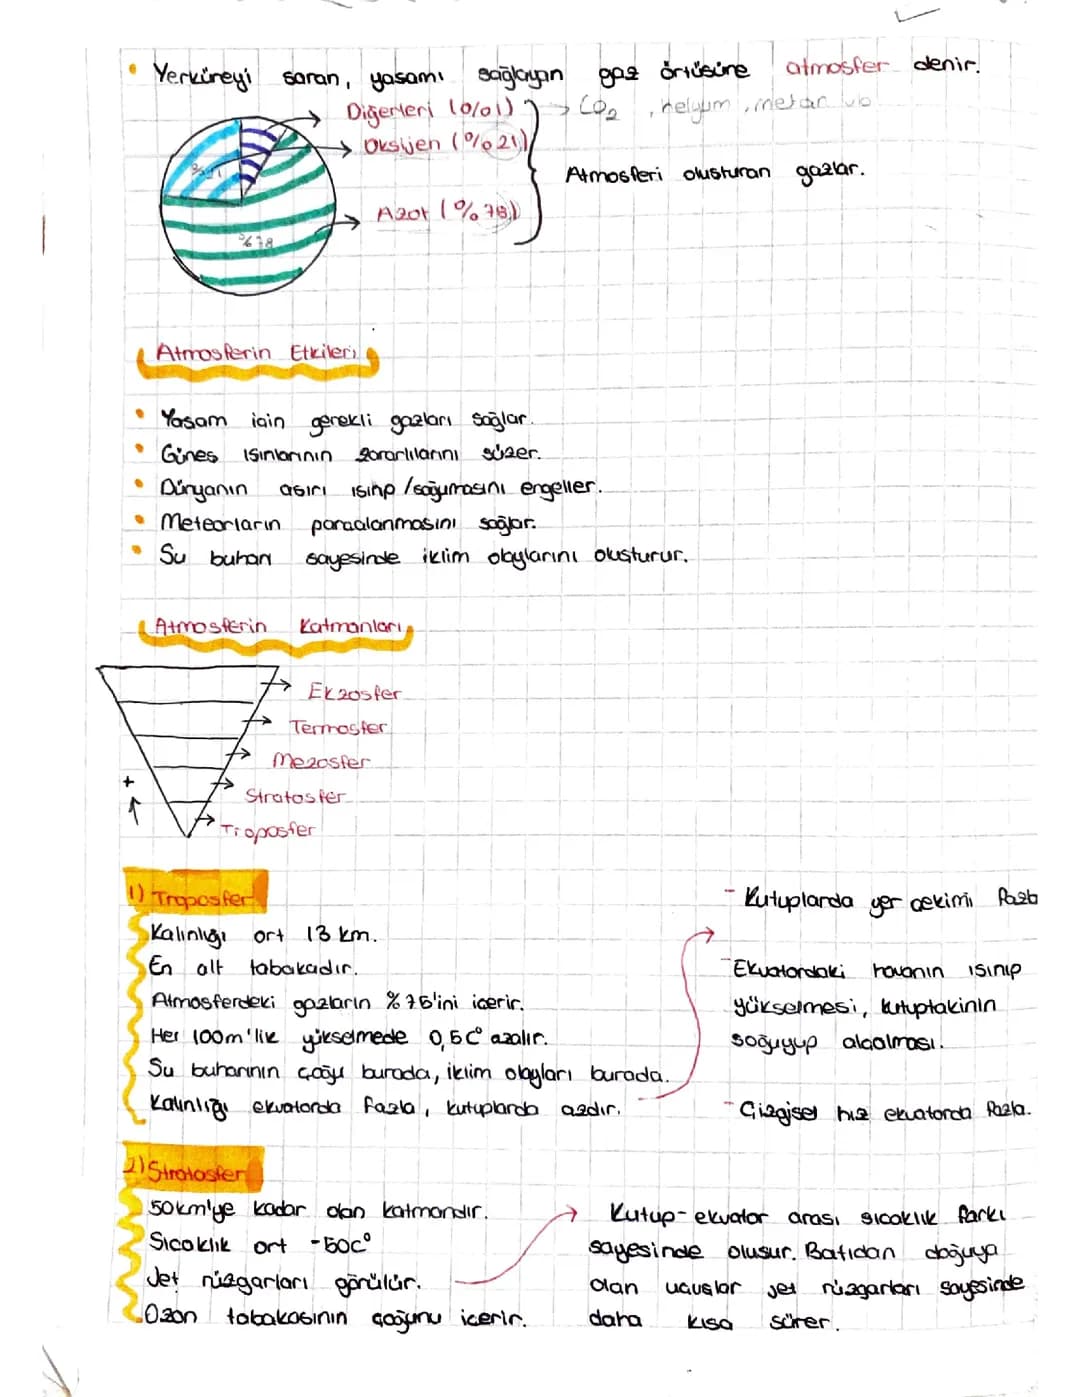 • Yerküreyi saran, yaşamı sağlayan gaz örtüsüne atmosfer denir.
Diğerleri (%01) → CO₂, helyum, metan vb
Oksijen (%21)
Atmosferi oluşturan gazlar.
Azot (%78)
%21
%78
Atmosferin Etkileri
• Yaşam için gerekli gazları sağlar.
• Güneş ışınlarının zararlılarını süzer.
• Dünyanın aşırı ısınıp/soğumasını engeller.
• Meteorların parçalanmasını sağlar.
• Su buharı sayesinde iklim olaylarını oluşturur.
Atmosferin Katmanları
Ekzosfer
Termosfer
Mezosfer
+
Stratosfer
Troposfer
1) Troposfer
Kalınlığı ort 13 km.
En alt tabakadır.
Atmosferdeki gazların %75'ini içerir.
Her 100m'lik yükselmede 0,5C° azalır.
Su buharının çoğu burada, iklim olayları burada.
Kalınlığı ekvatorda fazla, kutuplarda azdır.
- Kutuplarda yer çekimi fazla
- Ekvatordaki havanın ısınıp
yükselmesi, kutuptakinin
soğuyup alçalması.
- Çizgisel hız ekvatorda fazla.
2) Stratosfer
50km'ye kadar olan katmandır.
Sıcaklık ort -50C°
Jet rüzgarları görülür.
Ozon tabakasının çoğunu içerir.
Kutup-ekvator arası sıcaklık farkı
sayesinde oluşur. Batıdan doğuya
olan uçuşlar jet rüzgarları sayesinde
daha kısa sürer.